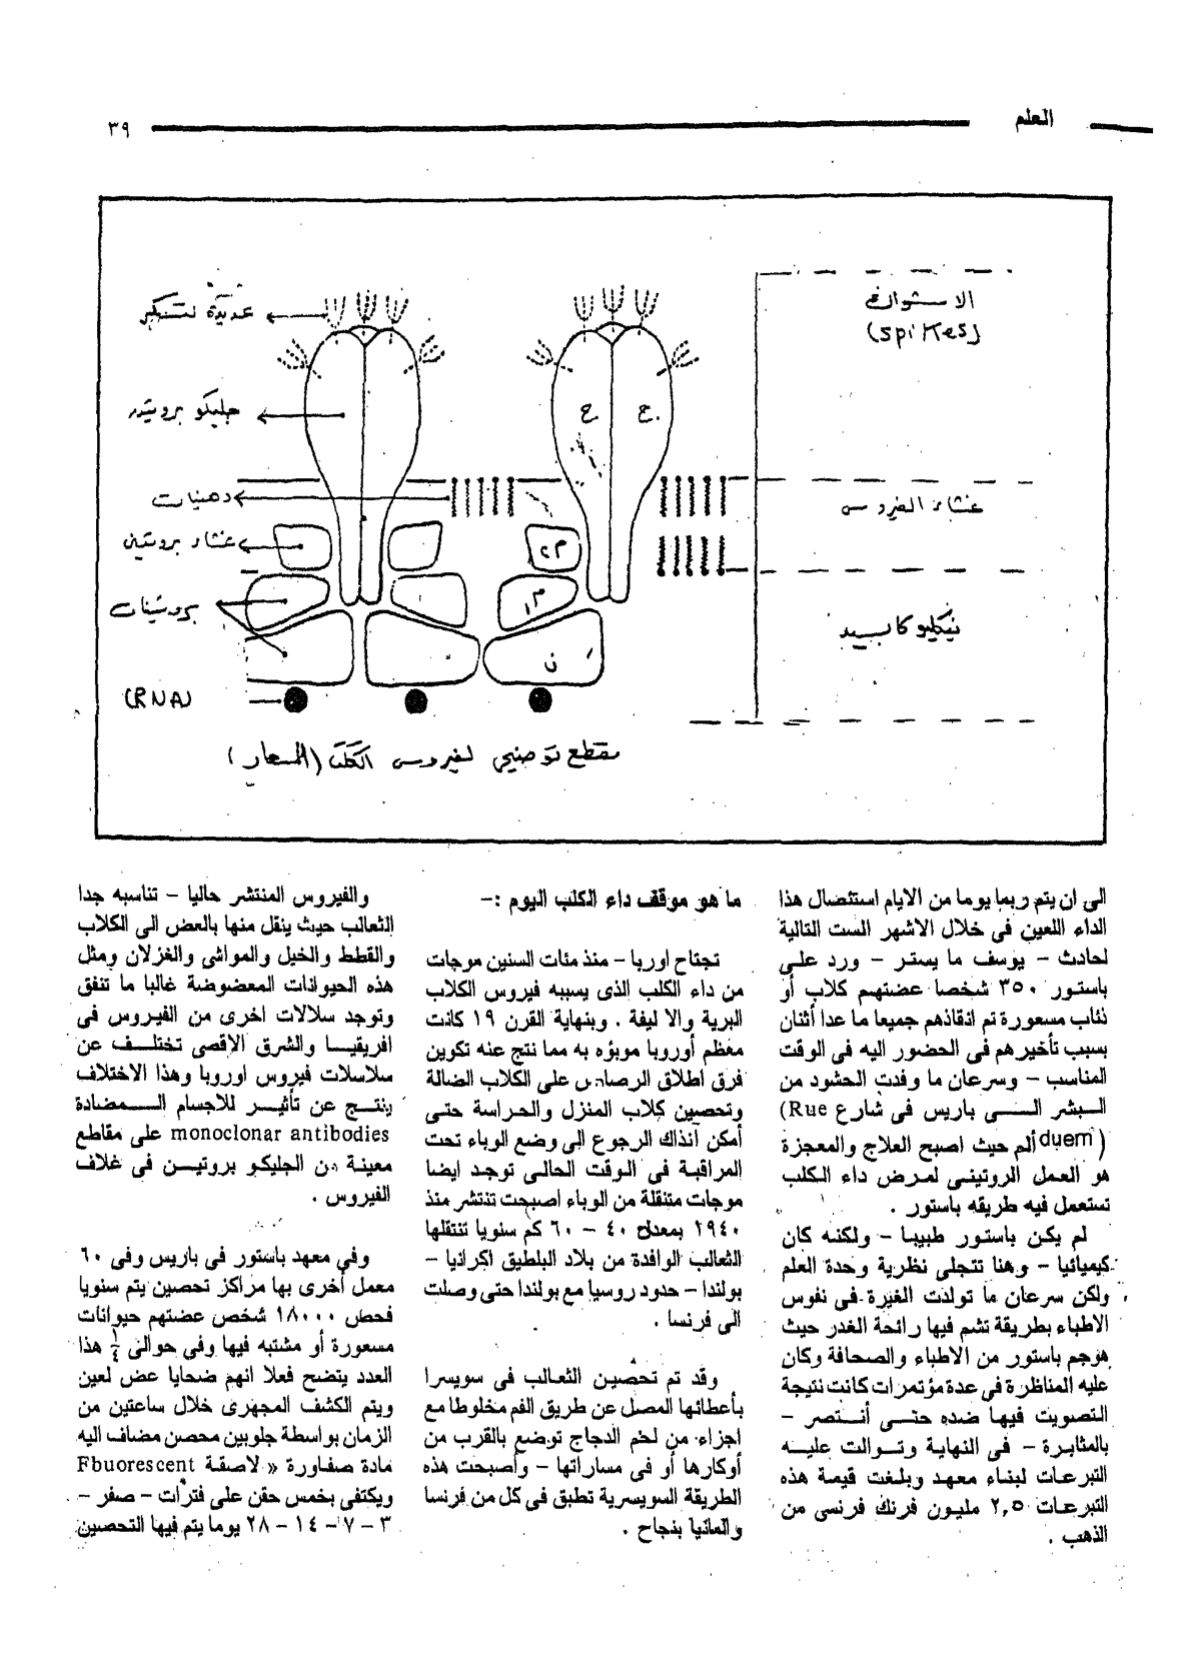 العلم
٣٩
الاشواك
(spikes)
عديدة لتسكر
جليكو بروتين
ح
ح
دهنيات
غشاء الفيروس
غشاء بروتين
م٢
بروتينات
م١
نيكليوكابسيد
ن
(RNA)
مقطع توضيحى لفيروس الكلب (السعار)
الى ان يتم ربما يوما من الايام استئصال هذا
الداء اللعين فى خلال الاشهر الست التالية
لحادث – يوسف ما يستر – ورد على
باستور ٣٥٠ شخصا عضتهم كلاب أو
ذئاب مسعورة تم انقاذهم جميعا ما عدا أثنان
بسبب تأخيرهم فى الحضور اليه فى الوقت
المناسب – وسرعان ما وفدت الحشود من
البشر الى باريس فى شارع Rue)
duem) ألم حيث اصبح العلاج والمعجزة
هو العمل الروتينى لمرض داء الكلب
تستعمل فيه طريقه باستور .
لم يكن باستور طبيبا – ولكنه كان
كيميائيا – وهنا تتجلى نظرية وحدة العلم
ولكن سرعان ما تولدت الغيرة فى نفوس
الاطباء بطريقة تشم فيها رائحة الغدر حيث
هوجم باستور من الاطباء والصحافة وكان
عليه المناظرة فى عدة مؤتمرات كانت نتيجة
التصويت فيها ضده حتى أنتصر –
بالمثابرة – فى النهاية وتوالت عليه
التبرعات لبناء معهد وبلغت قيمة هذه
التبرعات ٢,٥ مليون فرنك فرنسى من
الذهب .
ما هو موقف داء الكلب اليوم :–
تجتاح اوربا – منذ مئات السنين موجات
من داء الكلب الذى يسببه فيروس الكلاب
البرية والا ليفة . وبنهاية القرن ١٩ كانت
معظم أوروبا موبؤه به مما نتج عنه تكوين
فرق اطلاق الرصاص على الكلاب الضالة
وتحصين كلاب المنزل والحراسة حتى
أمكن آنذاك الرجوع الى وضع الوباء تحت
المراقبة فى الوقت الحالى توجد ايضا
موجات متنقلة من الوباء اصبحت تنتشر منذ
١٩٤٠ بمعدل ٤٠ – ٦٠ كم سنويا تنتقلها
الثعالب الوافدة من بلاد البلطيق اكرانيا –
بولندا – حدود روسيا مع بولندا حتى وصلت
الى فرنسا .
وقد تم تحصين الثعالب فى سويسرا
بأعطائها المصل عن طريق الفم مخلوطا مع
اجزاء من لحم الدجاج توضع بالقرب من
أوكارها أو فى مساراتها – وأصبحت هذه
الطريقة السويسرية تطبق فى كل من فرنسا
والمانيا بنجاح .
والفيروس المنتشر حاليا – تناسبه جدا
الثعالب حيث ينقل منها بالعض الى الكلاب
والقطط والخيل والمواشى والغزلان ومثل
هذه الحيوانات المعضوضة غالبا ما تنفق
وتوجد سلالات اخرى من الفيروس فى
افريقيا والشرق الاقصى تختلف عن
سلاسلات فيروس اوروبا وهذا الاختلاف
ينتج عن تأثير للاجسام المضادة
monoclonar antibodies على مقاطع
معينة من الجليكو بروتين فى غلاف
الفيروس .
وفى معهد باستور فى باريس وفى ٦٠
معمل أخرى بها مراكز تحصين يتم سنويا
فحص ١٨٠٠٠ شخص عضتهم حيوانات
مسعورة أو مشتبه فيها وفى حوالى ١/٤ هذا
العدد يتضح فعلا انهم ضحايا عض لعين
ويتم الكشف المجهرى خلال ساعتين من
الزمان بواسطة جلوبين محصن مضاف اليه
مادة صفاورة « لاصقة Fbuorescent
ويكتفى بخمس حقن على فترأت – صفر –
٣ – ٧ – ١٤ – ٢٨ يوما يتم فيها التحصين